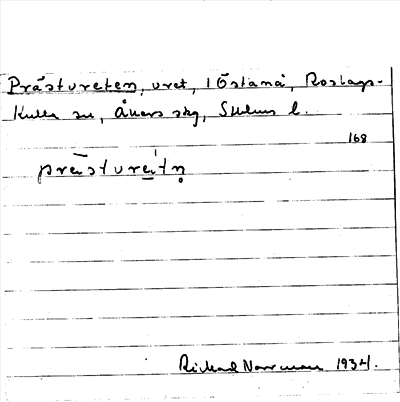 Prästvreten, vret, i Östanå, Roslags-
Kulla sn, Åkers skg, Sthlms l.
168
prästvreatn̥
Rickard Norrman 1934.